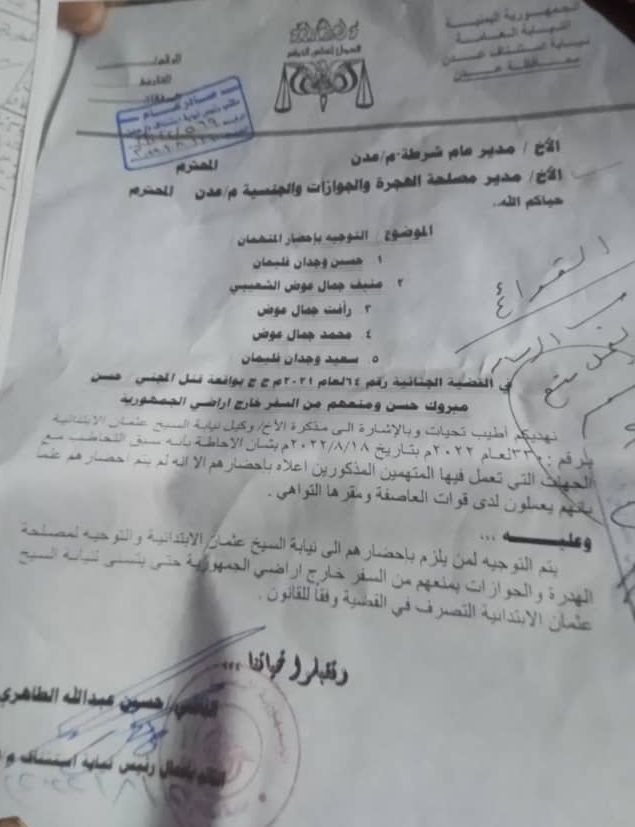 الجمهورية اليمنية
النيابة العامة
نيابة استئناف عدن
محافظة عدن
الرقم/
التاريخ
الأخ / مدير عام شرطة-م/عدن المحترم
الأخ/ مدير مصلحة الهجرة والجوازات والجنسية م/عدن المحترم
حياكم الله..
الموضوع / التوجيه بإحضار المتهمان
١ حسين وجدان قليمان
٢ منيف جمال عوض الشعيبي
٣ رأفت جمال عوض
٤ محمد جمال عوض
٥. سعيد وجدان قليمان
في القضية الجنائية رقم ٦٤ لعام ٢٠٢١م ج ج بواقعة قتل المجني / حسن
مبروك حسن ومنعهم من السفر خارج اراضي الجمهورية
نهديكم أطيب تحيات وبالإشارة الى مذكرة الأخ/ وكيل نيابة السيخ عثمان الابتدائية
برقم : ٣٣٠ لعام ٢٠٢٢م بتاريخ ٢٠٢٢/٨/١٨م بشان الاحاطة بانه سبق التخاطب مع
الجهات التي تعمل فيها المتهمين المذكورين اعلاه باحضارهم الا انه لم يتم احضارهم علما
بانهم يعملون لدى قوات العاصفة ومقرها التواهي .
وعليـــــه ,,,
يتم التوجيه لمن يلزم بإحضارهم الى نيابة السيخ عثمان الابتدائية والتوجيه لمصلحة
الهدرة والجوازات بمنعهم من السفر خارج اراضي الجمهورية حتى يتسنى لنيابه السيخ
عثمان الابتدائية التصرف في القضية وفقا للقانون .
وتقبلوا تحياتنا ,,,,
القاضي/حسين عبدالله الطاهري
القائم باعمال رئيس نيابة استئناف م